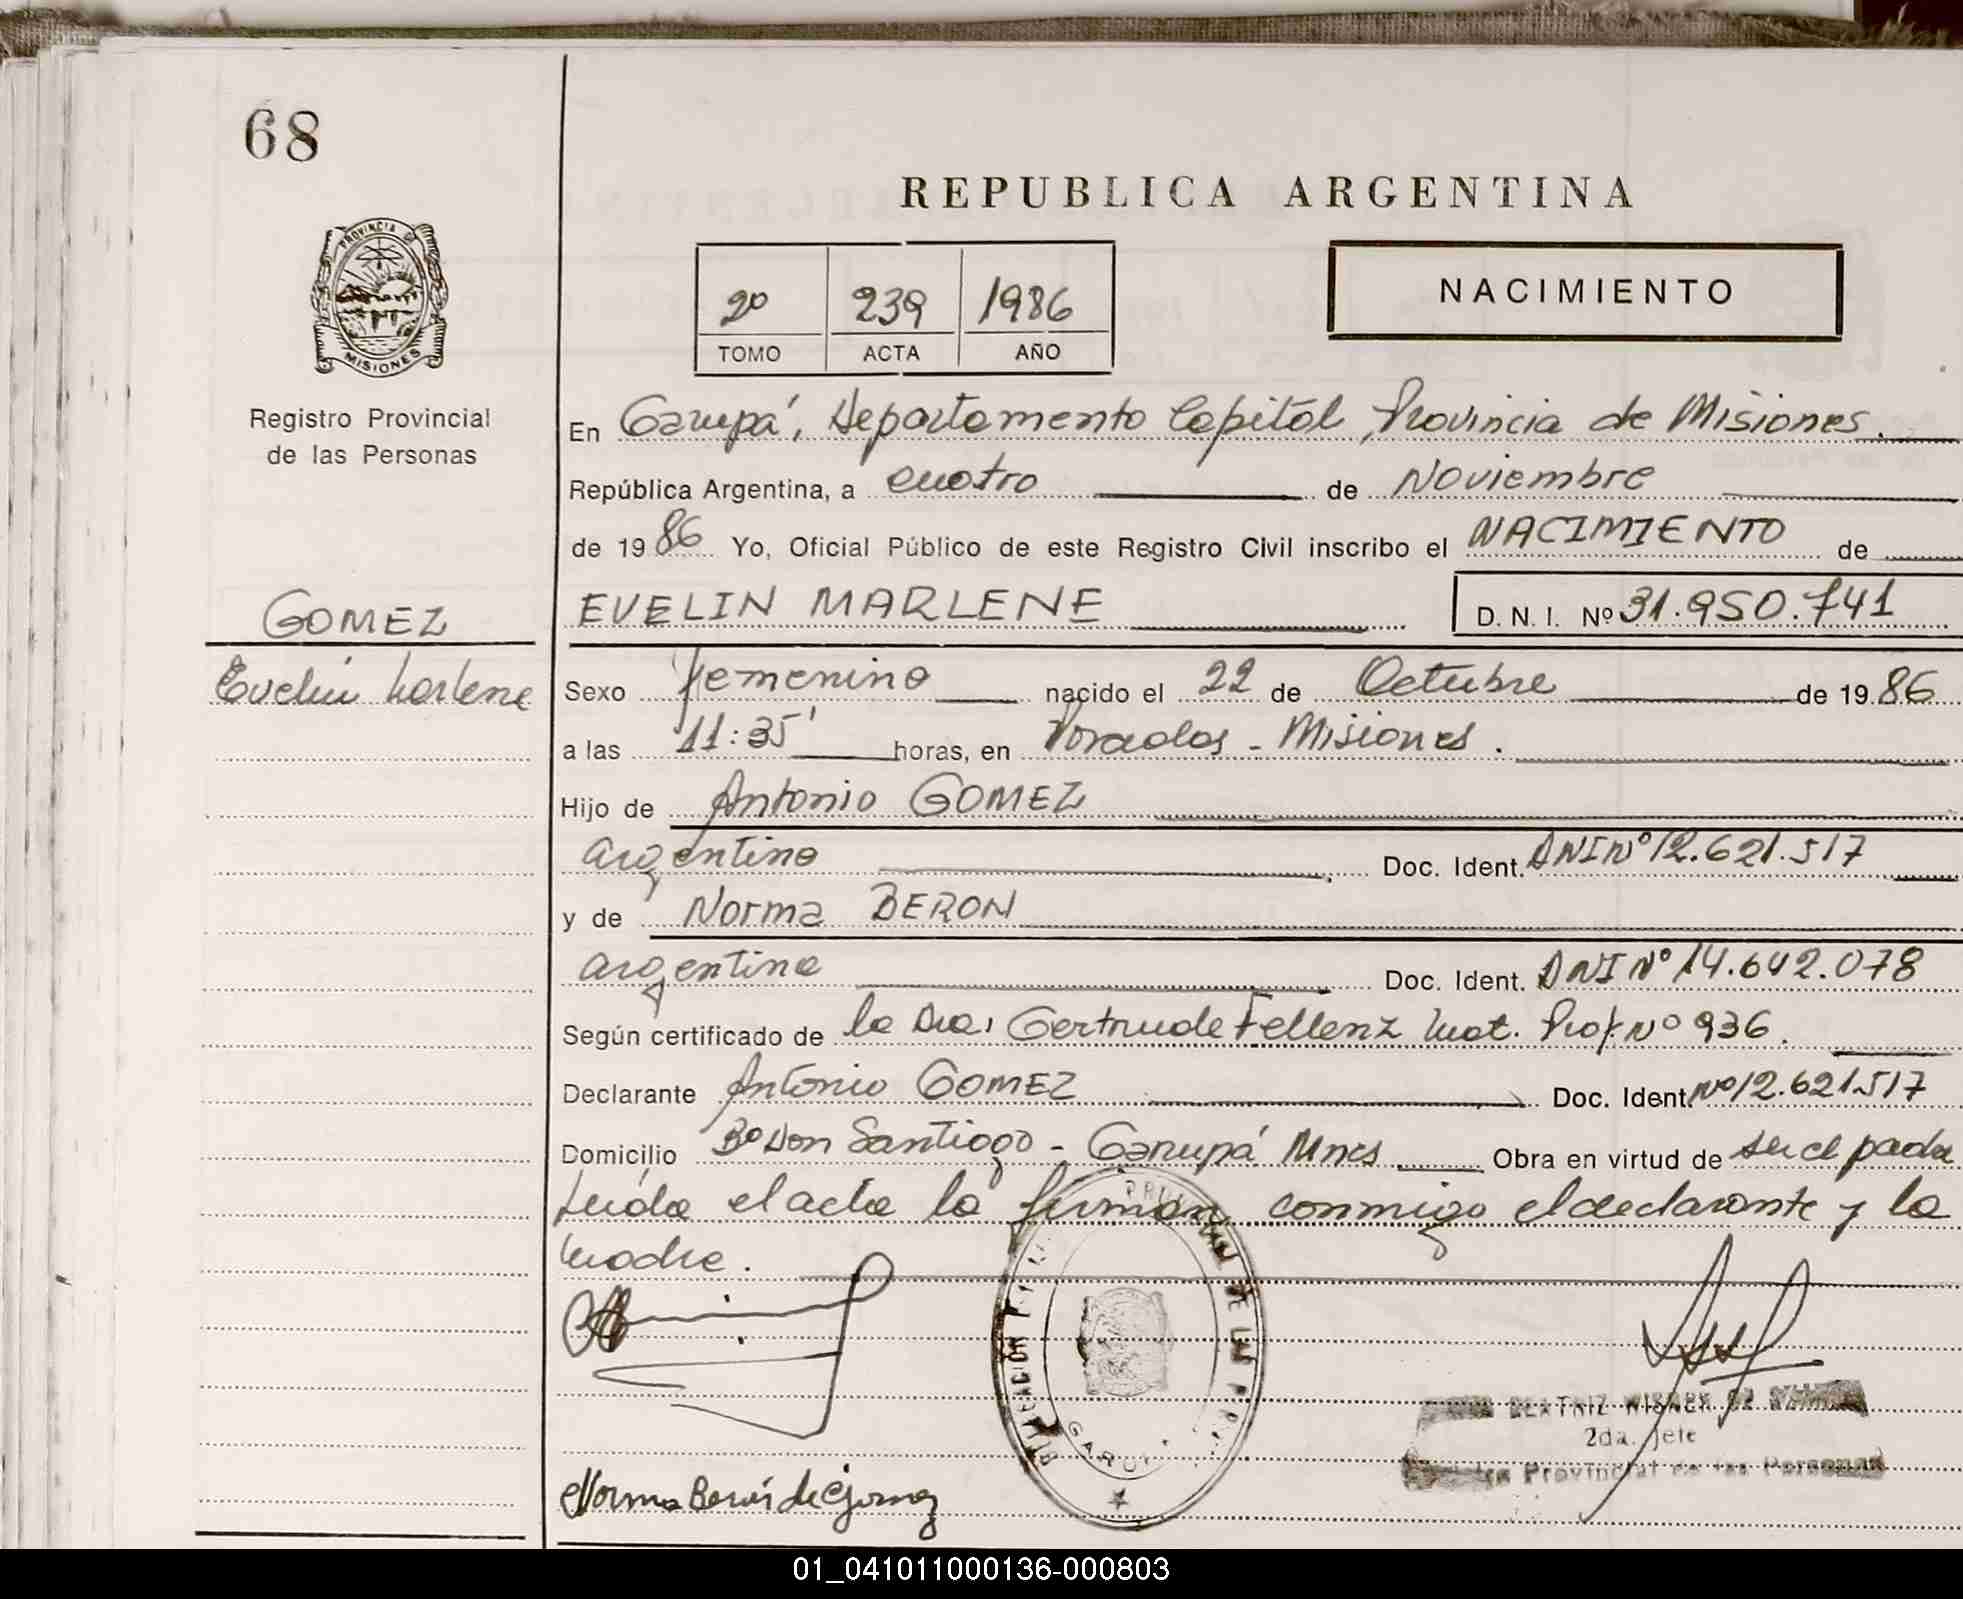 68
REPUBLICA ARGENTINA
PROVINCIA DE
MISIONES
2º 239 1986
TOMO ACTA AÑO
NACIMIENTO
Registro Provincial
de las Personas
En Garupá, Departamento Capital, Provincia de Misiones.
República Argentina, a cuatro de Noviembre
de 1986 Yo, Oficial Público de este Registro Civil inscribo el NACIMIENTO de
GOMEZ
EVELIN MARLENE D. N. I. Nº 31.950.741
Evelin Marlene
Sexo femenino nacido el 22 de Octubre de 1986
a las 11:35' horas, en Posadas - Misiones.
Hijo de Antonio GOMEZ
argentino Doc. Ident. DNI Nº 12.621.517
y de Norma BERON
argentina Doc. Ident. DNI Nº 14.642.078
Según certificado de la Dra. Gertrude Fellenz Mat. Prof. Nº 936.
Declarante Antonio GOMEZ Doc. Ident. Nº 12.621.517
Domicilio Bº Don Santiago - Garupá Mnes Obra en virtud de ser el padre
Leída el acta la firman conmigo el declarante y la
madre.
BEATRIZ
2da. Jefe
Provincial de las Personas
Norma Beron de Gomez
01_041011000136-000803